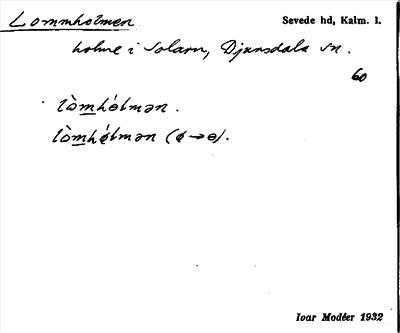 Lommholmen Sevede hd, Kalm. l.
holme i Solaren, Djursdala sn.
60
lòmhólmən.
lòmhólmən (ó→ɵ).
Ivar Modéer 1932